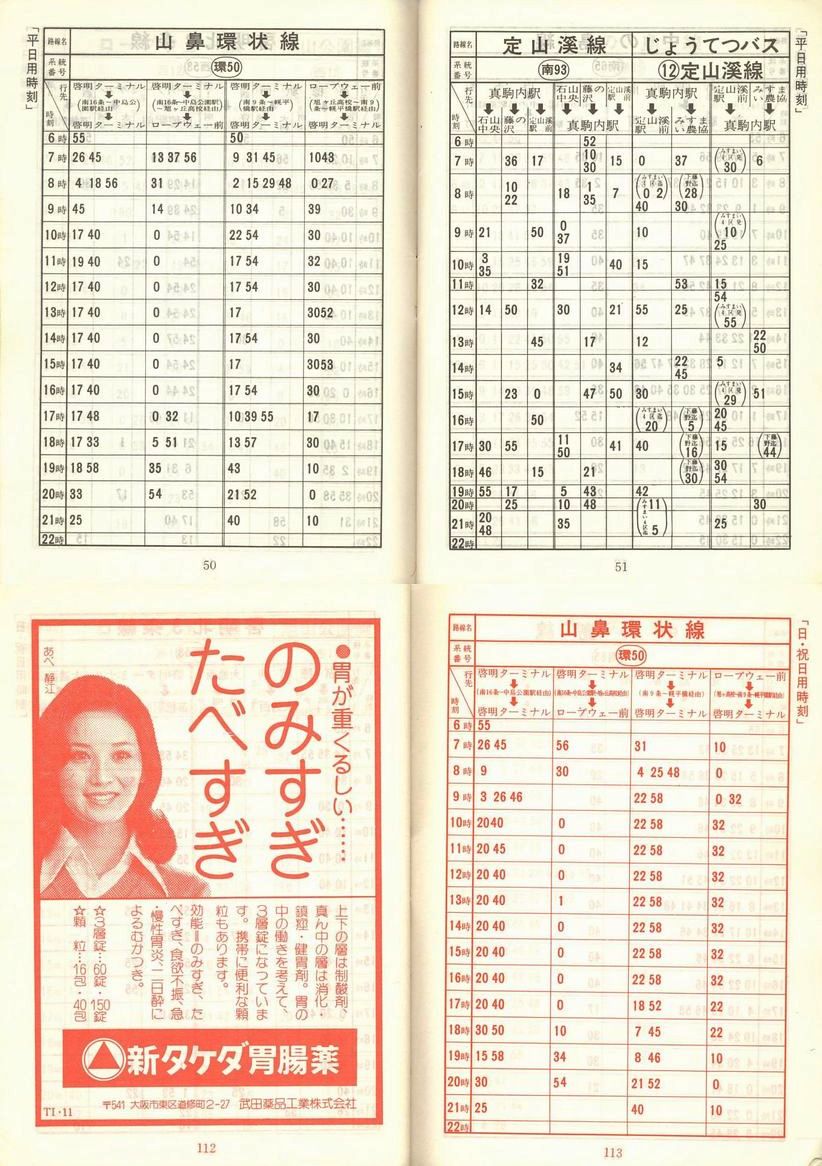 「平日用時刻」
路線名 山鼻環状線
系統番号 環50
行先 時刻
啓明ターミナル (南16条〜中島公園駅経由) 啓明ターミナル
啓明ターミナル (南16条〜中島公園駅〜旭ヶ丘高校経由) ロープウェー前
啓明ターミナル (南9条〜幌平橋駅経由) 啓明ターミナル
ロープウェー前 (旭ヶ丘高校〜南9条〜幌平橋経由) 啓明ターミナル
6時 55 50
7時 26 45 13 37 56 9 31 45 10 43
8時 4 18 56 31 2 15 29 48 0 27
9時 45 14 10 34 39
10時 17 40 0 22 54 30
11時 19 40 0 17 54 32
12時 17 40 0 17 54 30
13時 17 40 0 17 30 52
14時 17 40 0 17 54 30
15時 17 40 0 17 30 53
16時 17 40 0 17 54 30
17時 17 48 0 32 10 39 55 17
18時 17 33 5 51 13 57 30
19時 18 58 35 43 10
20時 33 54 21 52 0
21時 25 40 10
22時
50
「平日用時刻」
路線名 定山渓線 じょうてつバス
系統番号 南93 ⑫定山渓線
行先 時刻
真駒内駅 石山中央 藤の沢 定山渓駅前
石山中央 藤の沢 定山渓前 真駒内駅
真駒内駅 定山渓駅前 みすまい農協
定山渓駅前 みすまい農協 真駒内駅
6時 52
7時 36 17 10 30 15 0 37 (みすまい4区発 30) 6
8時 10 22 18 1 35 7 (みすまい4区迄 0 2) 40 (下藤野迄 28) 30
9時 21 50 0 37 10 (みすまい4区発 10) 25
10時 3 35 19 51 40 15
11時 32 53 15 54
12時 14 50 30 21 55 25 (みすまい4区発 55)
13時 45 17 12 22 50
14時 34 22 45 5
15時 23 0 47 50 30 (みすまい4区発 29) 51
16時 50 (みすまい4区迄 20) (下藤野迄 5) 20 45
17時 30 55 11 50 41 40 (下藤野迄 16) 15 (下藤野迄 44)
18時 46 15 21 (下藤野迄 30) 30 54
19時 55 17 5 43 42
20時 25 10 48 (11 30
21時 20 48 35 みすまい4区迄 5) 25
22時
51
あべ静江
●胃が重くるしい……
のみすぎ
たべすぎ
上下の層は制酸剤、
真ん中の層は消化・
鎮痙・健胃剤。胃の
中の働きを考えて、
3層錠になっていま
す。携帯に便利な顆
粒もあります。
効能＝のみすぎ、た
べすぎ、食欲不振、急
・慢性胃炎、二日酔に
よるむかつき。
☆3層錠…60錠・150錠
☆顆 粒…16包・40包
新タケダ胃腸薬
〒541 大阪市東区道修町2-27 武田薬品工業株式会社
TI・11
112
「日・祝日用時刻」
路線名 山鼻環状線
系統番号 環50
行先 時刻
啓明ターミナル (南16条〜中島公園駅経由) 啓明ターミナル
啓明ターミナル (南16条〜中島公園駅〜旭ヶ丘高校経由) ロープウェー前
啓明ターミナル (南9条〜幌平橋経由) 啓明ターミナル
ロープウェー前 (旭ヶ丘高校〜南9条〜幌平橋駅経由) 啓明ターミナル
6時 55
7時 26 45 56 31 10
8時 9 30 4 25 48 0
9時 3 26 46 22 58 0 32
10時 20 40 0 22 58 32
11時 20 45 0 22 58 32
12時 20 40 0 22 58 32
13時 20 40 1 22 58 32
14時 20 40 0 22 58 32
15時 20 40 0 22 58 32
16時 20 40 0 22 58 32
17時 20 40 0 18 52 22
18時 30 50 10 7 45 22
19時 15 58 34 8 46 10
20時 30 54 21 52 0
21時 25 40 10
22時
113